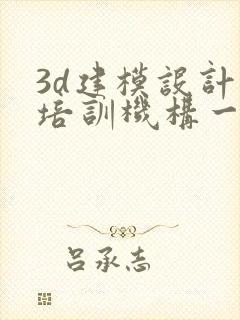 3d建模設計
培訓機構一
吕承志